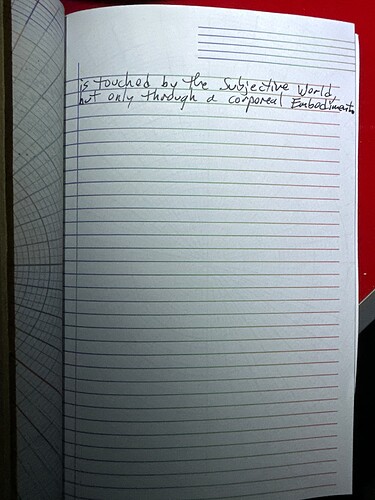 is touched by the Subjective World,
but only through a corporeal Embodiment.